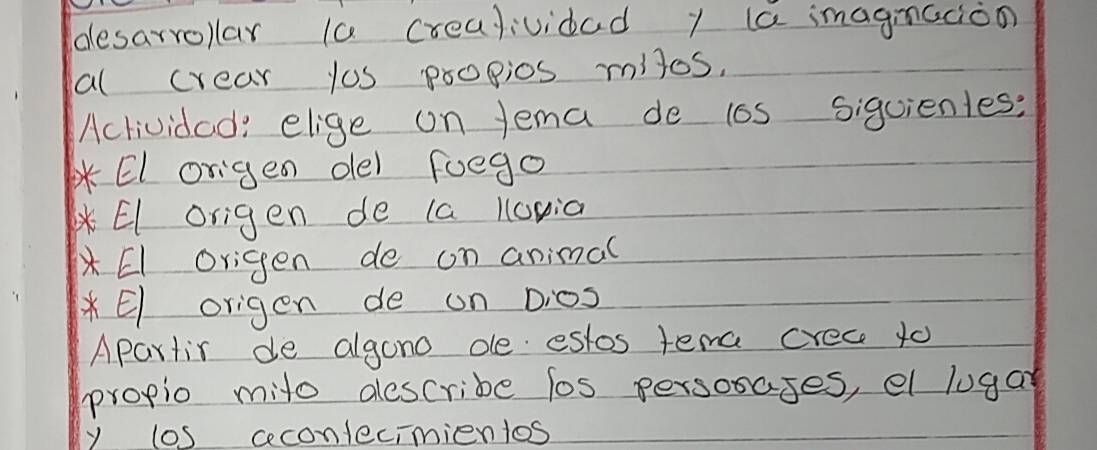 desarrollar la creatividad y la imaginación
al crear los propios mitos.
Actividad: elige un tema de los siguientes:
* El origen del fuego
* El origen de la lluvia
* El origen de un animal
* El origen de un Dios
Apartir de alguno de estos tema crea tu
propio mito describe los personajes, el lugar
y los acontecimientos